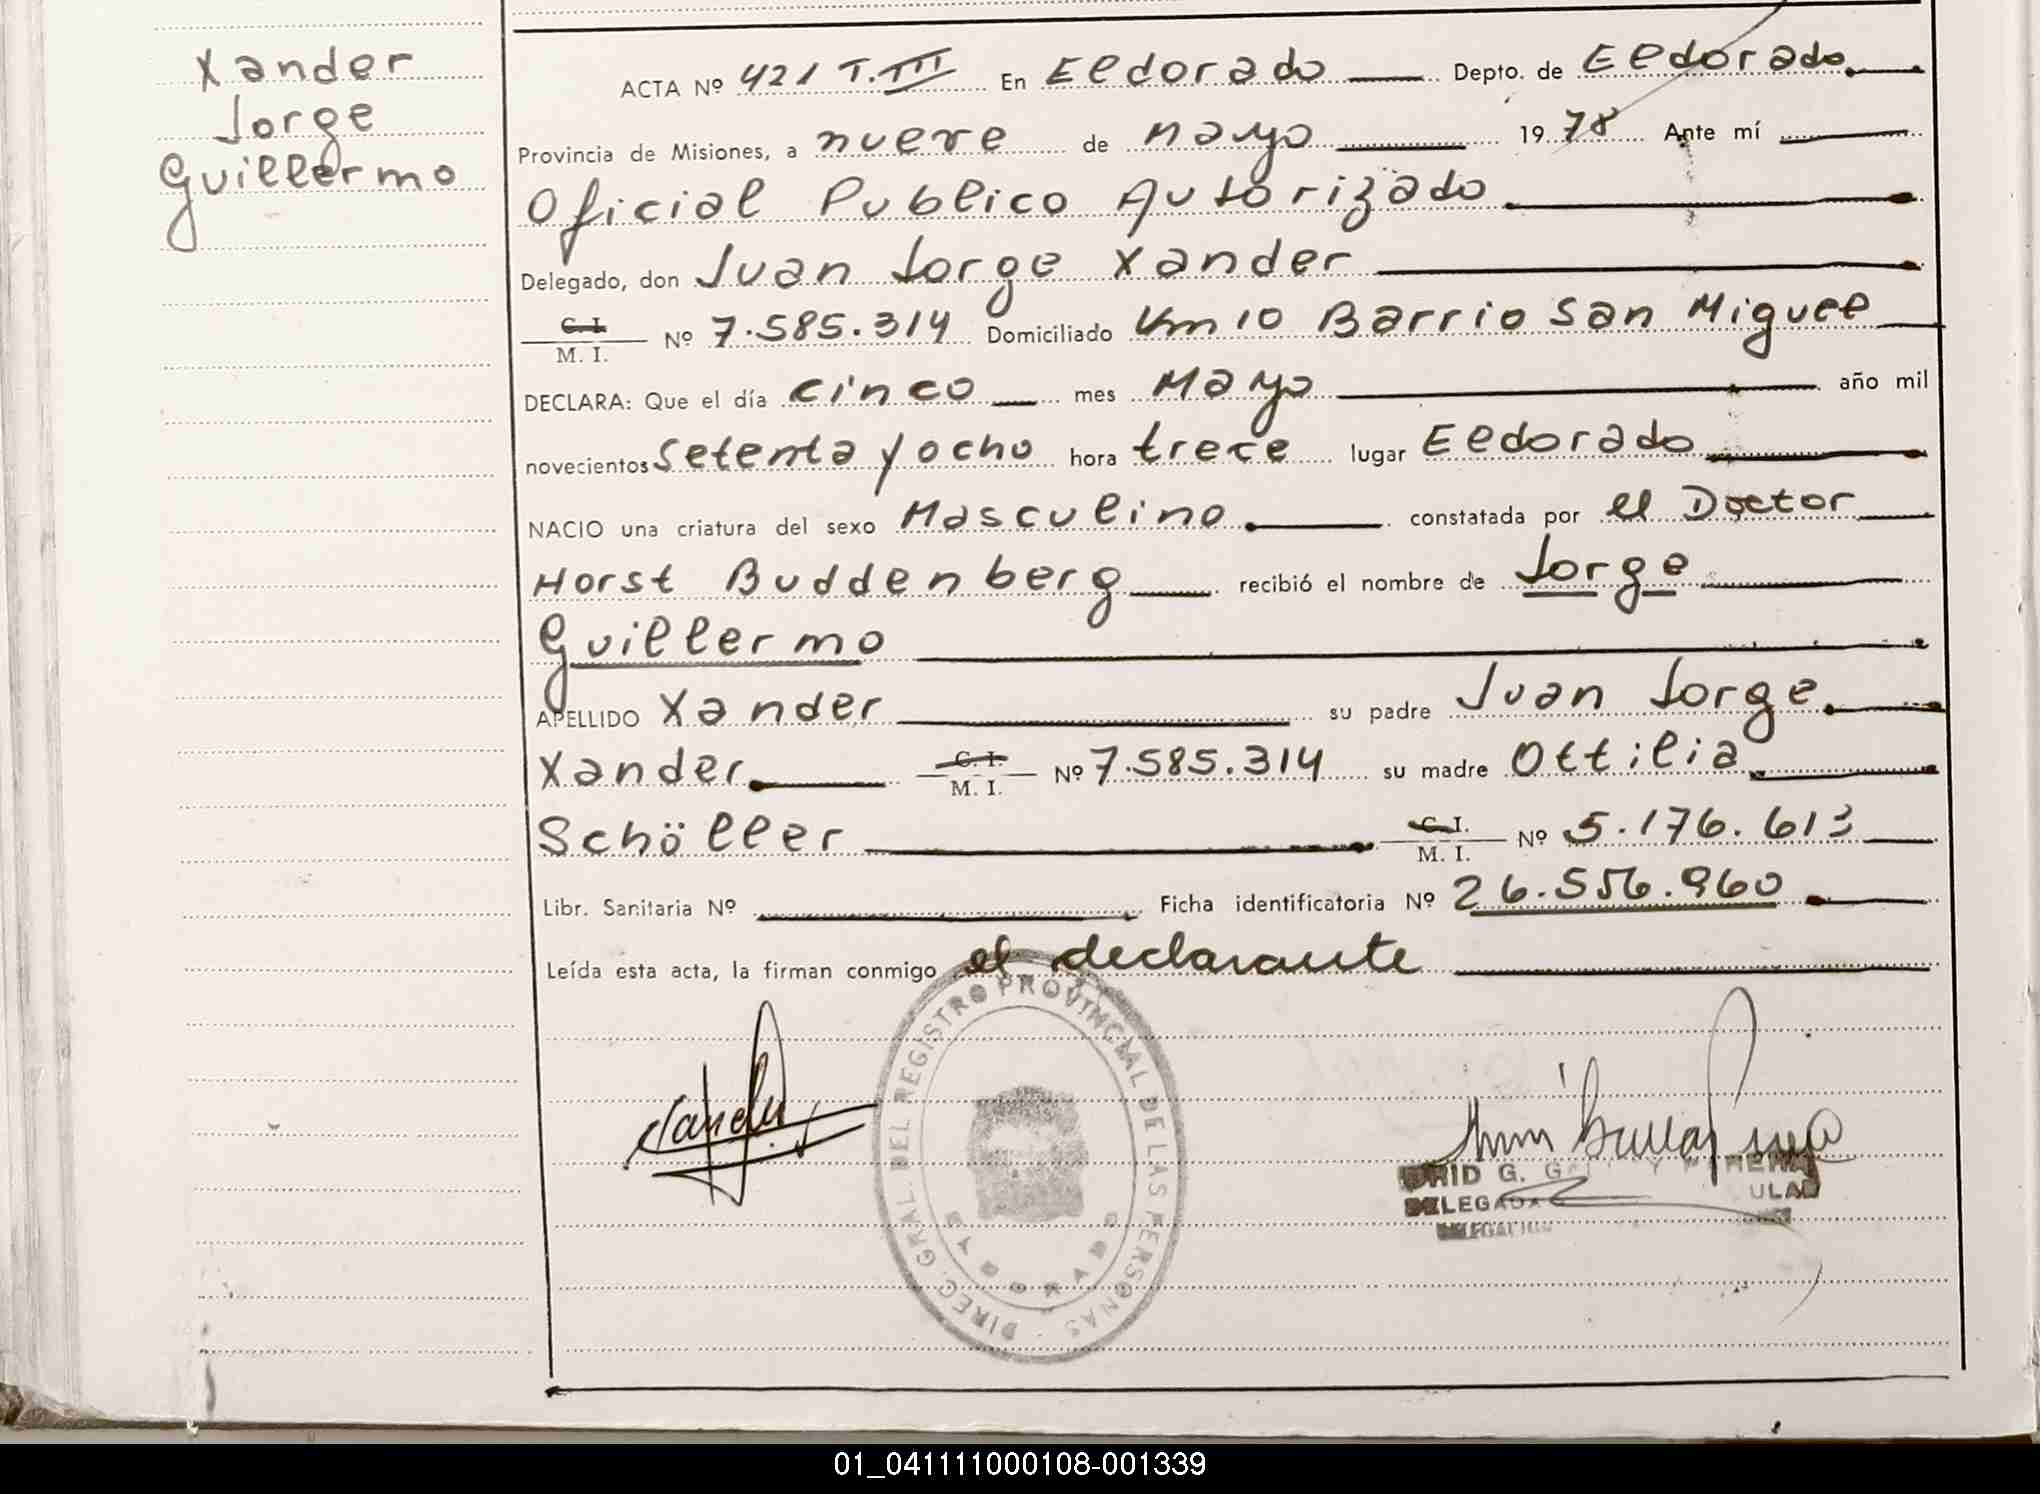 Xander
Jorge
Guillermo
ACTA Nº 421 T.III En Eldorado Depto. de Eldorado
Provincia de Misiones, a nueve de Mayo 1978 Ante mí
Oficial Publico Autorizado
Delegado, don Juan Jorge Xander
C. I.
M. I. Nº 7.585.314 Domiciliado Km 10 Barrio San Miguel
DECLARA: Que el día cinco mes Mayo año mil
novecientos setenta y ocho hora trece lugar Eldorado
NACIO una criatura del sexo Masculino constatada por el Doctor
Horst Buddenberg recibió el nombre de Jorge
Guillermo
APELLIDO Xander su padre Juan Jorge
Xander C. I.
M. I. Nº 7.585.314 su madre Ottilia
Schöller C. I.
M. I. Nº 5.176.613
Libr. Sanitaria Nº Ficha identificatoria Nº 26.556.960
Leída esta acta, la firman conmigo el declarante
DIREC. GRAL. DEL REGISTRO PROVINCIAL DE LAS PERSONAS
ELDORADO
G.
DELEGADA
DELEGACION
01_041111000108-001339